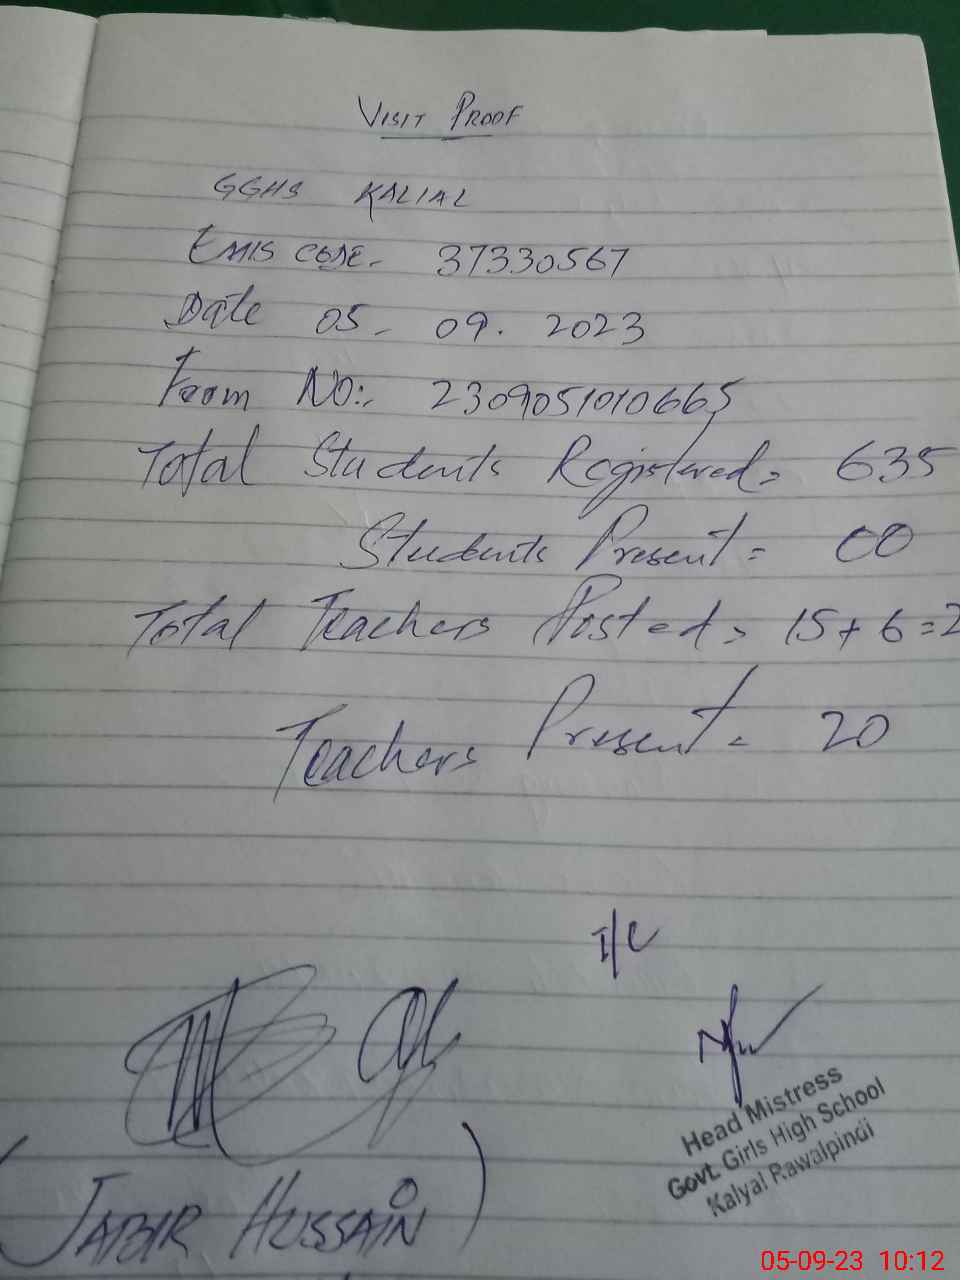 VISIT PROOF
GGHS KALIAL
EMIS CODE- 37330567
Date 05-09.2023
Form NO:. 2309051010665
Total Students Registered= 635
Students Present = 00
Total Teachers Posted= 15+6=2
Teachers Present = 20
I/C
Head Mistress
Govt. Girls High School
Kalyal Rawalpindi
(JABIR HUSSAIN)
05-09-23 10:12